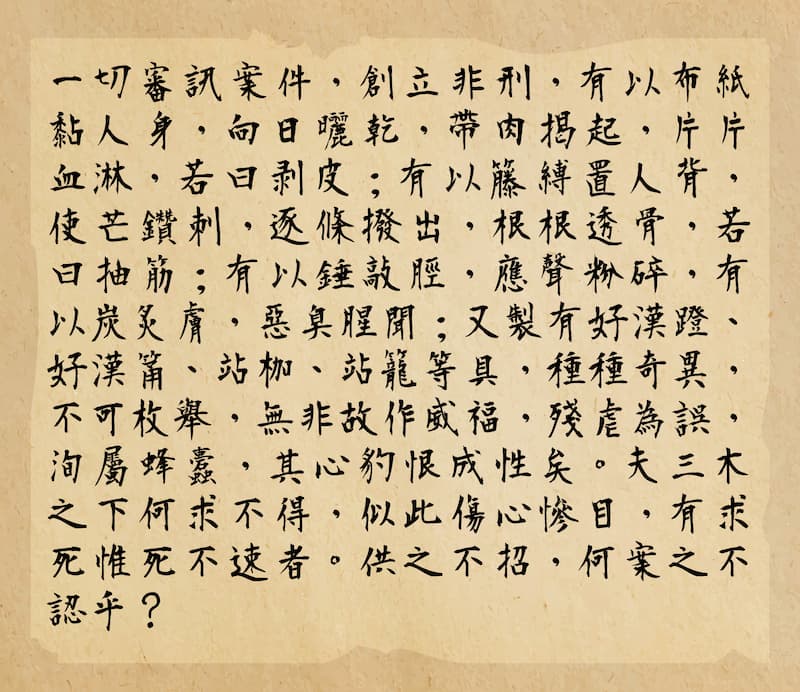 一切審訊案件，創立非刑，有以布紙
黏人身，向日曬乾，帶肉揭起，片片
血淋，若曰剥皮；有以籐縛置人背，
使芒鑽刺，逐條撥出，根根透骨，若
曰抽筋；有以錘敲脛，應聲粉碎，有
以炭炙膚，惡臭腥聞；又製有好漢蹬、
好漢箾、站枷、站籠等具，種種奇異，
不可枚舉，無非故作威福，殘虐為誤，
洵屬蜂蠹，其心豹恨成性矣。夫三木
之下何求不得，似此傷心慘目，有求
死惟死不速者。供之不招，何案之不
認乎？